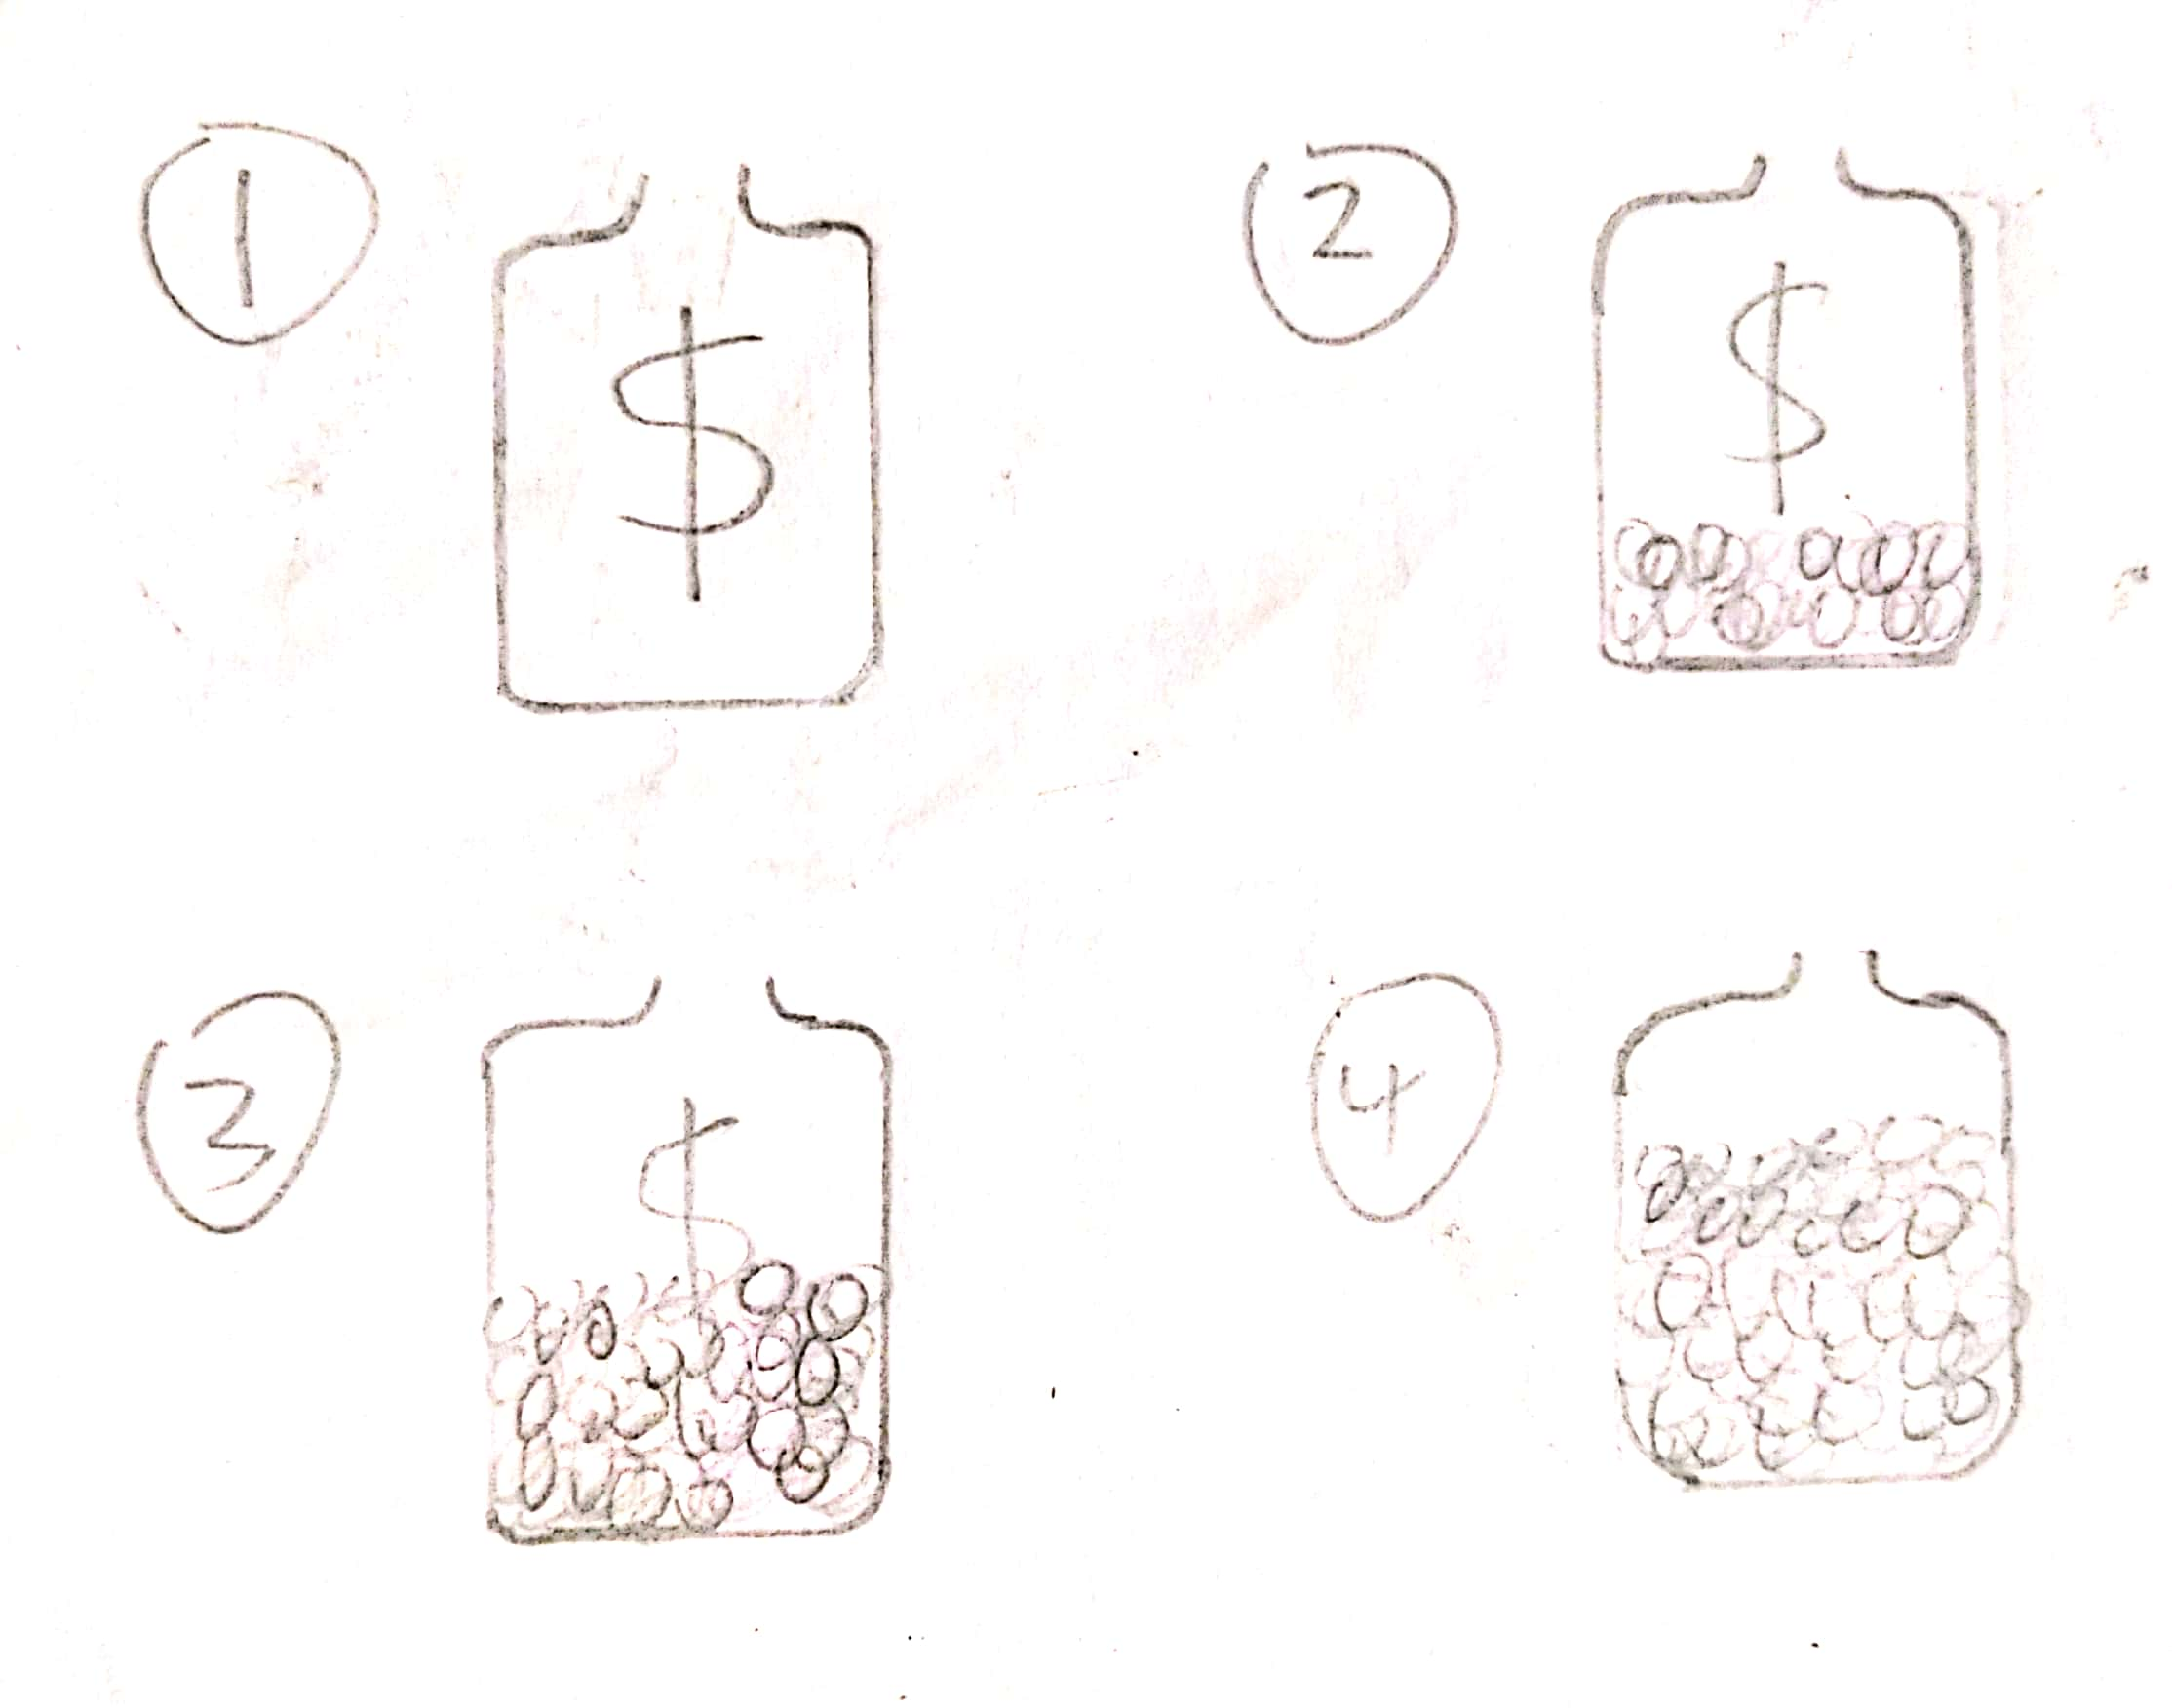 1
$
2
$
3
$
4